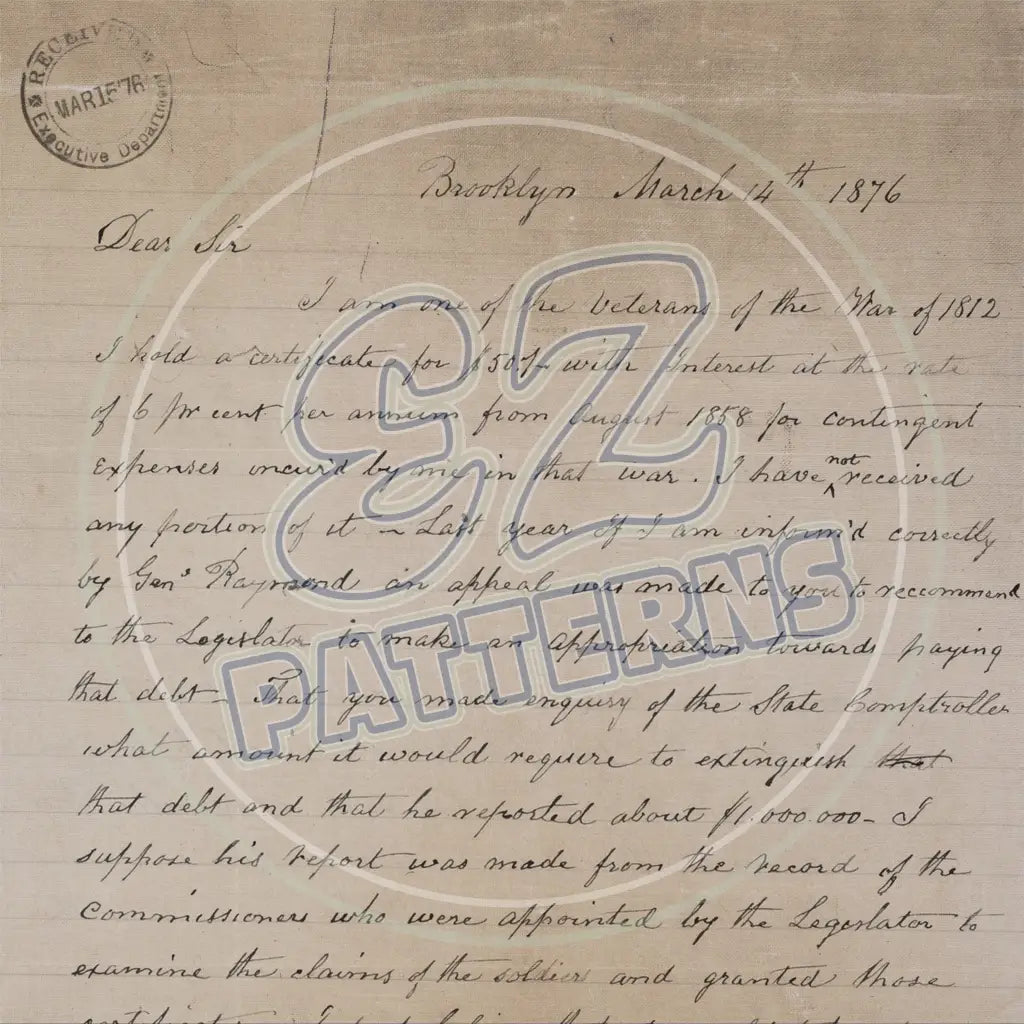 RECEIVED
MAR 15 '76
Executive Department
Brooklyn March 14th 1876
Dear Sir
I am one of the Veterans of the War of 1812
I hold a certificate for $50/- with Interest at the rate
of 6 pr cent per annum from August 1858 for contingent
Expenses incur'd by me in that war. I have not received
any portion of it – Last year If I am inform'd correctly
by Genl Raymond an appeal was made to you to reccommend
to the Legislator to make an appropriation towards paying
that debt – That you made enquiry of the State Comptroller
what amount it would require to extinguish that
that debt and that he reported about $1.000.000 – I
suppose his report was made from the record of the
Commissioners who were appointed by the Legeslator to
examine the claims of the soldiers and granted those
EZ
PATTERNS